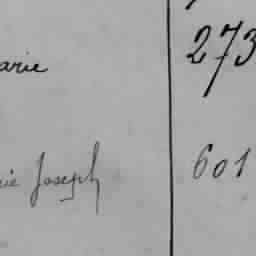 arie 273
ie Joseph 601